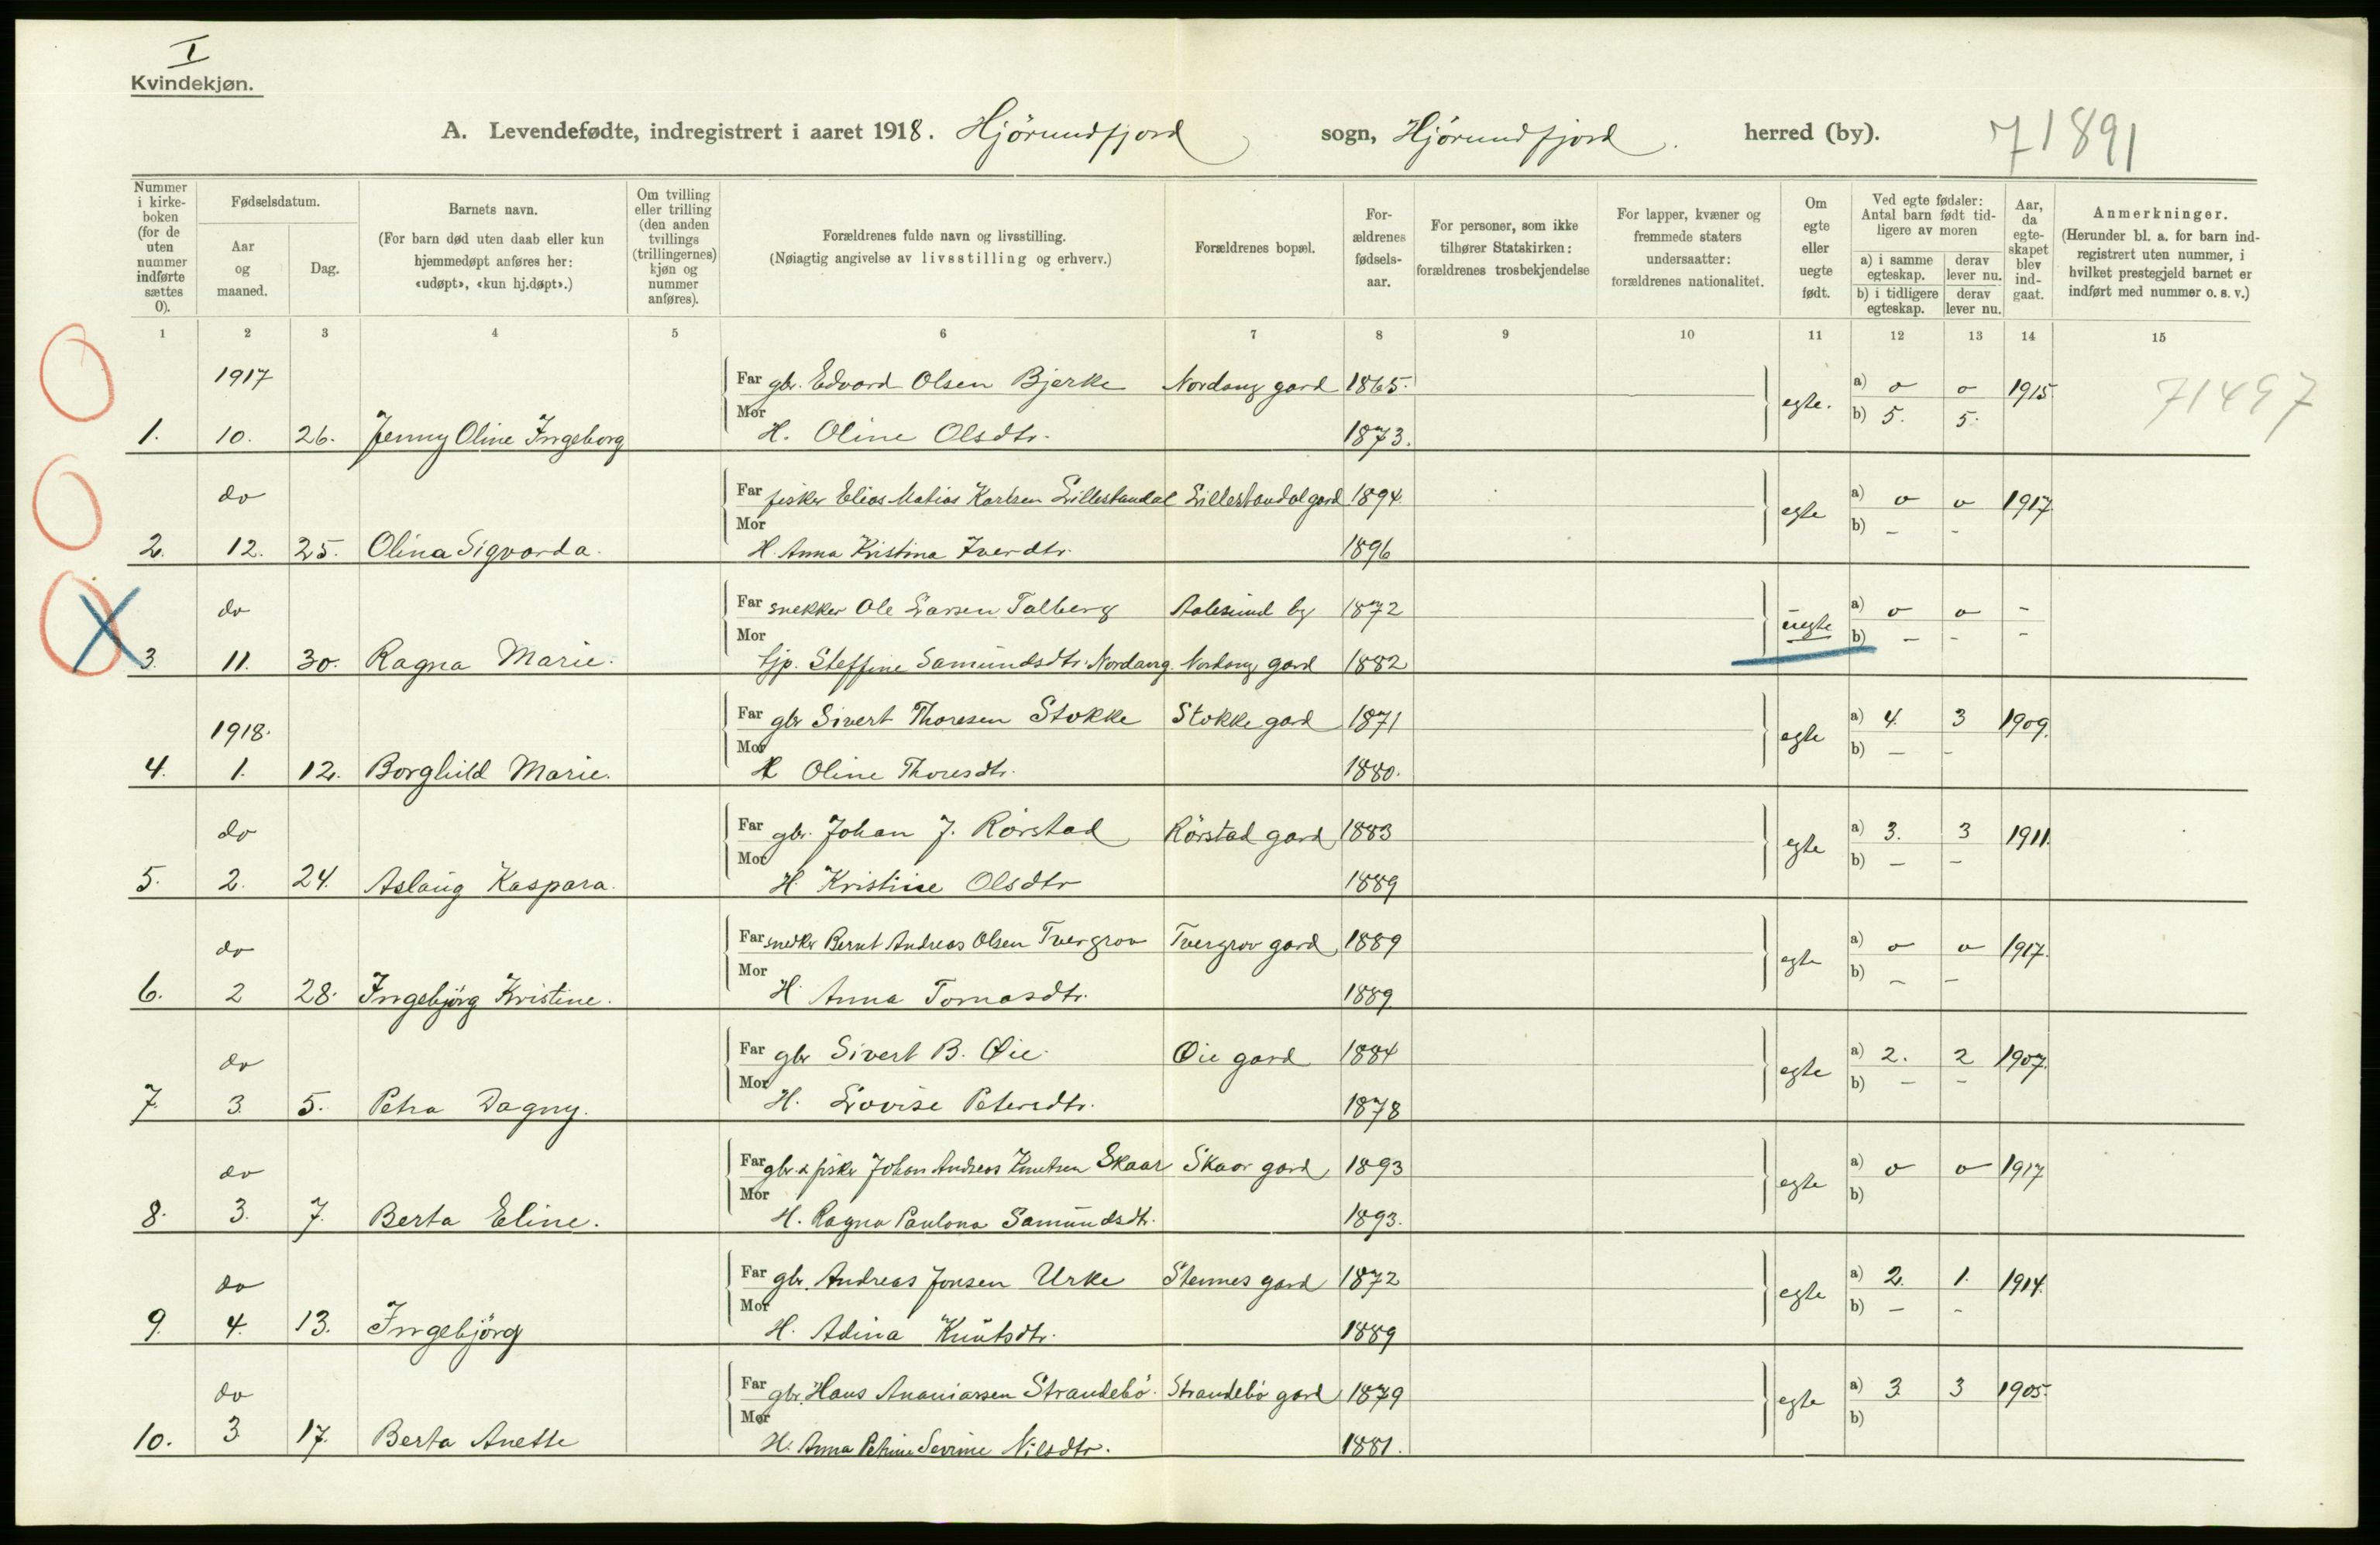 I
Kvindekjøn.
A. Levendefødte, indregistrert i aaret 1918. Hjörundfjord sogn, Hjörundfjord herred (by). 71891
Nummer i kirke-boken (for de uten nummer indførte sættes 0).
Fødselsdatum.
Aar og maaned.
Dag.
Barnets navn.
(For barn død uten daab eller kun hjemmedøpt anføres her: «udøpt», «kun hj.døpt».)
Om tvilling eller trilling (den anden tvillings (trillingernes) kjøn og nummer anføres).
Forældrenes fulde navn og livsstilling.
(Nøiagtig angivelse av livsstilling og erhverv.)
Forældrenes bopæl.
For-ældrenes fødsels-aar.
For personer, som ikke tilhører Statskirken: forældrenes trosbekjendelse
For lapper, kvæner og fremmede staters undersaatter: forældrenes nationalitet.
Om egte eller uegte født.
Ved egte fødsler: Antal barn født tid-ligere av moren
a) i samme egteskap. derav lever nu.
b) i tidligere egteskap. derav lever nu.
Aar, da egte-skapet blev ind-gaat.
Anmerkninger.
(Herunder bl. a. for barn ind-registrert uten nummer, i hvilket prestegjeld barnet er indført med nummer o. s. v.)
1 2 3 4 5 6 7 8 9 10 11 12 13 14 15
1917 Far gbr. Edvard Olsen Bjerke Nordang gard 1865. egte. a) o o 1915 71497
1. 10. 26. Jenny Oline Ingeborg Mor H. Oline Olsdtr. 1873. b) 5. 5.
do Far fisker Elias Matias Karlsen Lillestandal Lillestandal gard 1894. egte a) o o 1917
2. 12. 25. Olina Sigvarda. Mor H. Anna Kristina Iverdtr. 1896 b) – -
do Far snekker Ole Larsen Talberg Aalesund by 1872 uegte a) o o -
3. 11. 30. Ragna Marie. Mor tjp. Steffine Samundsdtr. Nordang. Nordang gard 1882 b) – - -
1918. Far gbr Sivert Thoresen Stokke Stokke gard 1871 egte a) 4. 3 1909.
4. 1. 12. Borghild Marie. Mor H Oline Thoresdtr. 1880. b) – -
do Far gbr. Johan J. Rörstad Rörstad gard 1883 egte a) 3. 3 1911.
5. 2. 24. Aslaug Kaspara. Mor H. Kristine Olsdtr 1889 b) – -
do Far snedker Bernt Andreas Olsen Tvergrov Tvergrov gard 1889 egte a) o o 1917.
6. 2 28. Ingebjörg Kristine. Mor H. Anna Tomasdtr. 1889 b) – -
do Far gbr Sivert B. Øie. Øie gard 1884 egte a) 2. 2 1907.
7. 3. 5. Petra Dagny. Mor H. Lovise Petersdtr. 1878 b) – -
do Far gbr & fisker Johan Andreas Knutsen Skaar Skaar gard 1893 egte a) o o 1917
8. 3. 7. Berta Eline. Mor H. Ragna Paulona Samundsdtr. 1893. b)
do Far gbr. Andreas Jonsen Urke Stennes gard 1872 egte a) 2. 1. 1914.
9. 4. 13. Ingebjörg Mor H. Adina Knutsdtr. 1889 b) – -
do Far gbr. Hans Ananiassen Strandebö. Strandebö gard 1879 egte a) 3 3 1905.
10. 3 17. Berta Anette Mor H. Anna Petrine Sevrine Nilsdtr. 1881. b)